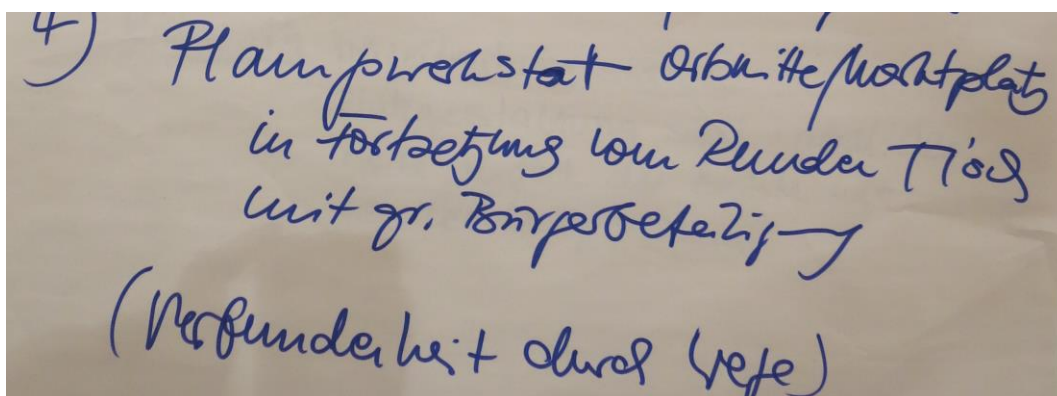 4) Planungswerkstatt Ortsmitte/Marktplatz
in Fortsetzung vom Runden Tisch
mit gr. Bürgerbeteiligung
(Verbundenheit durch Wege)